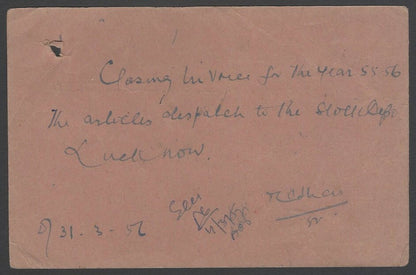 Closing Invoice for the year 55-56
The articles despatch to the Stock Depo
Lucknow.
31-3-56